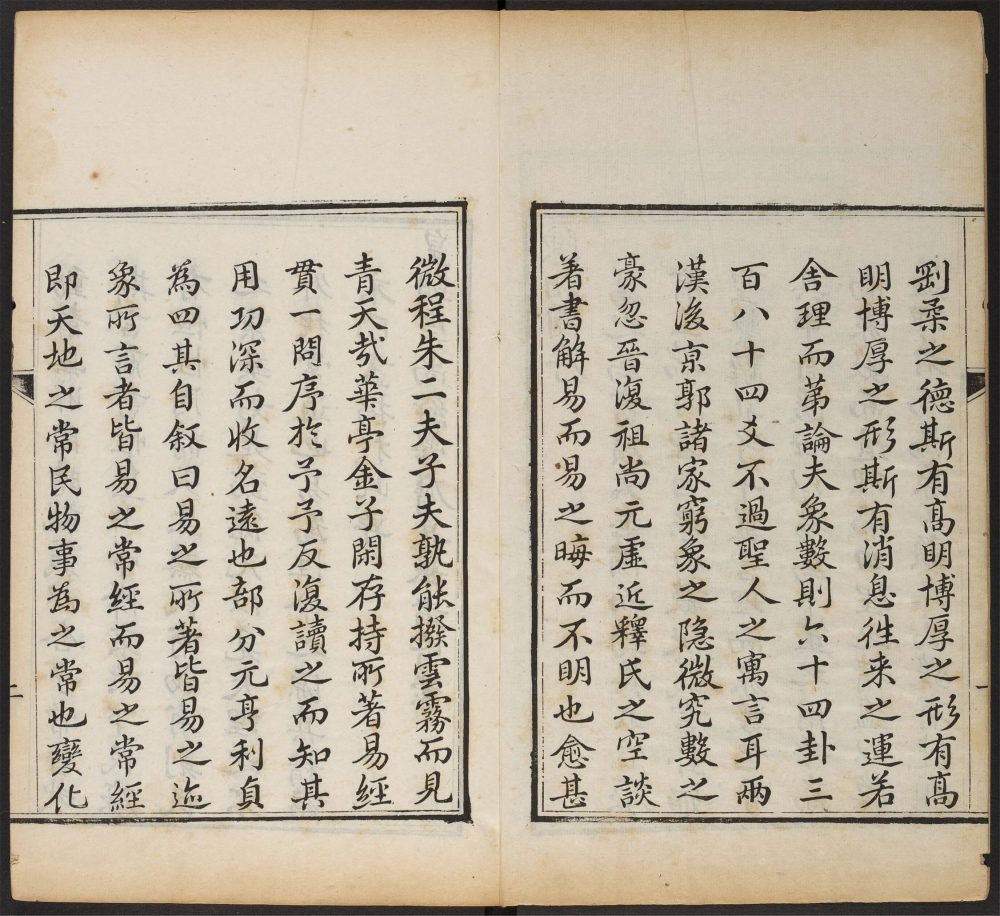 剛柔之德斯有髙明博厚之形有髙
明博厚之形斯有消息徃来之運若
舎理而苐論夫象數則六十四卦三
百八十四爻不過聖人之寓言耳兩
漢後京郭諸家窮象之隐微究數之
豪忽晉復祖尚元虚近釋氏之空談
著書解易而易之晦而不明也愈甚
一
微程朱二夫子夫孰能撥雲霧而見
青天㢤華亭金子閑存持所著易經
貫一問序扵予予反復讀之而知其
用功深而收名遠也部分元亨利貞
為四其自叙曰易之所著皆易之迹
象所言者皆易之常經而易之常經
即天地之常民物事為之常也變化
二